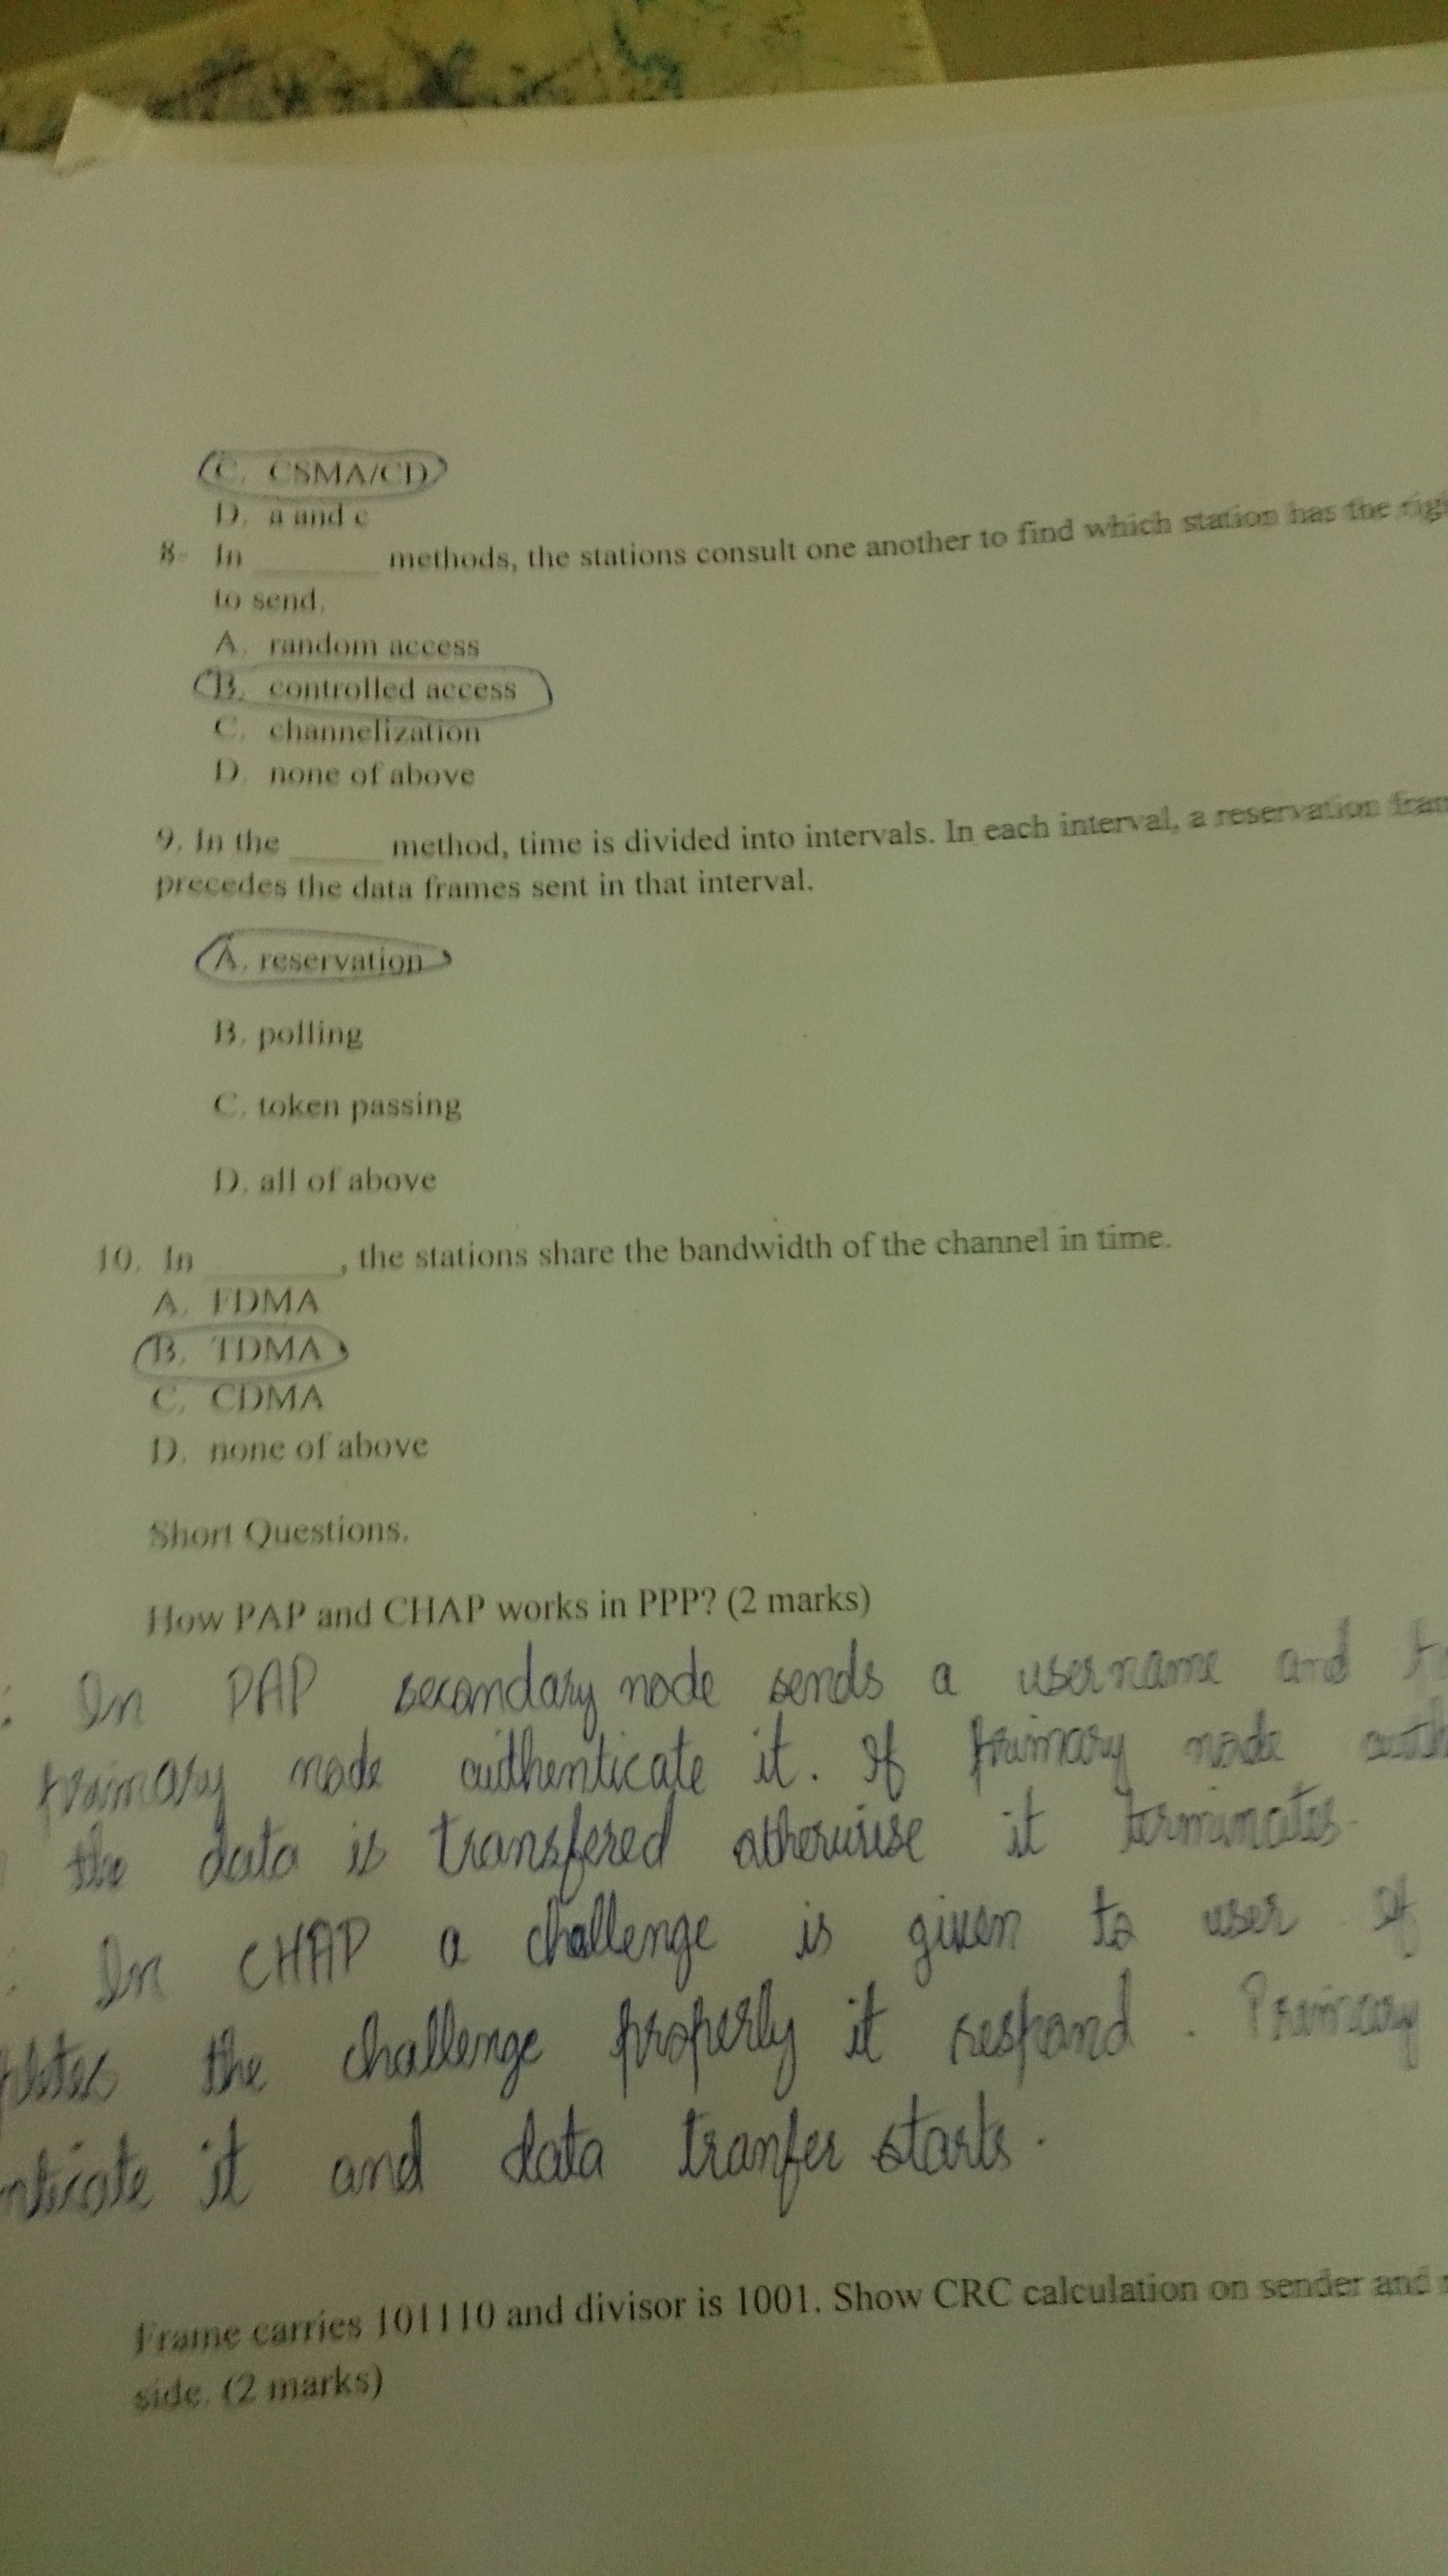 C. CSMA/CD
D. a and c
8- In ________ methods, the stations consult one another to find which station has the
to send.
A. random access
B. controlled access
C. channelization
D. none of above
9. In the ______ method, time is divided into intervals. In each interval, a reservation
precedes the data frames sent in that interval.
A. reservation
B. polling
C. token passing
D. all of above
10. In ________, the stations share the bandwidth of the channel in time.
A. FDMA
B. TDMA
C. CDMA
D. none of above
Short Questions.
How PAP and CHAP works in PPP? (2 marks)
: In PAP secondary node sends a username and
primary node authenticate it. If primary node
the data is transfered otherwise it terminates.
In CHAP a challenge is given to user. If
the challenge properly it respond. Primary
it and data tranfer starts.
Frame carries 101110 and divisor is 1001. Show CRC calculation on sender and
side. (2 marks)